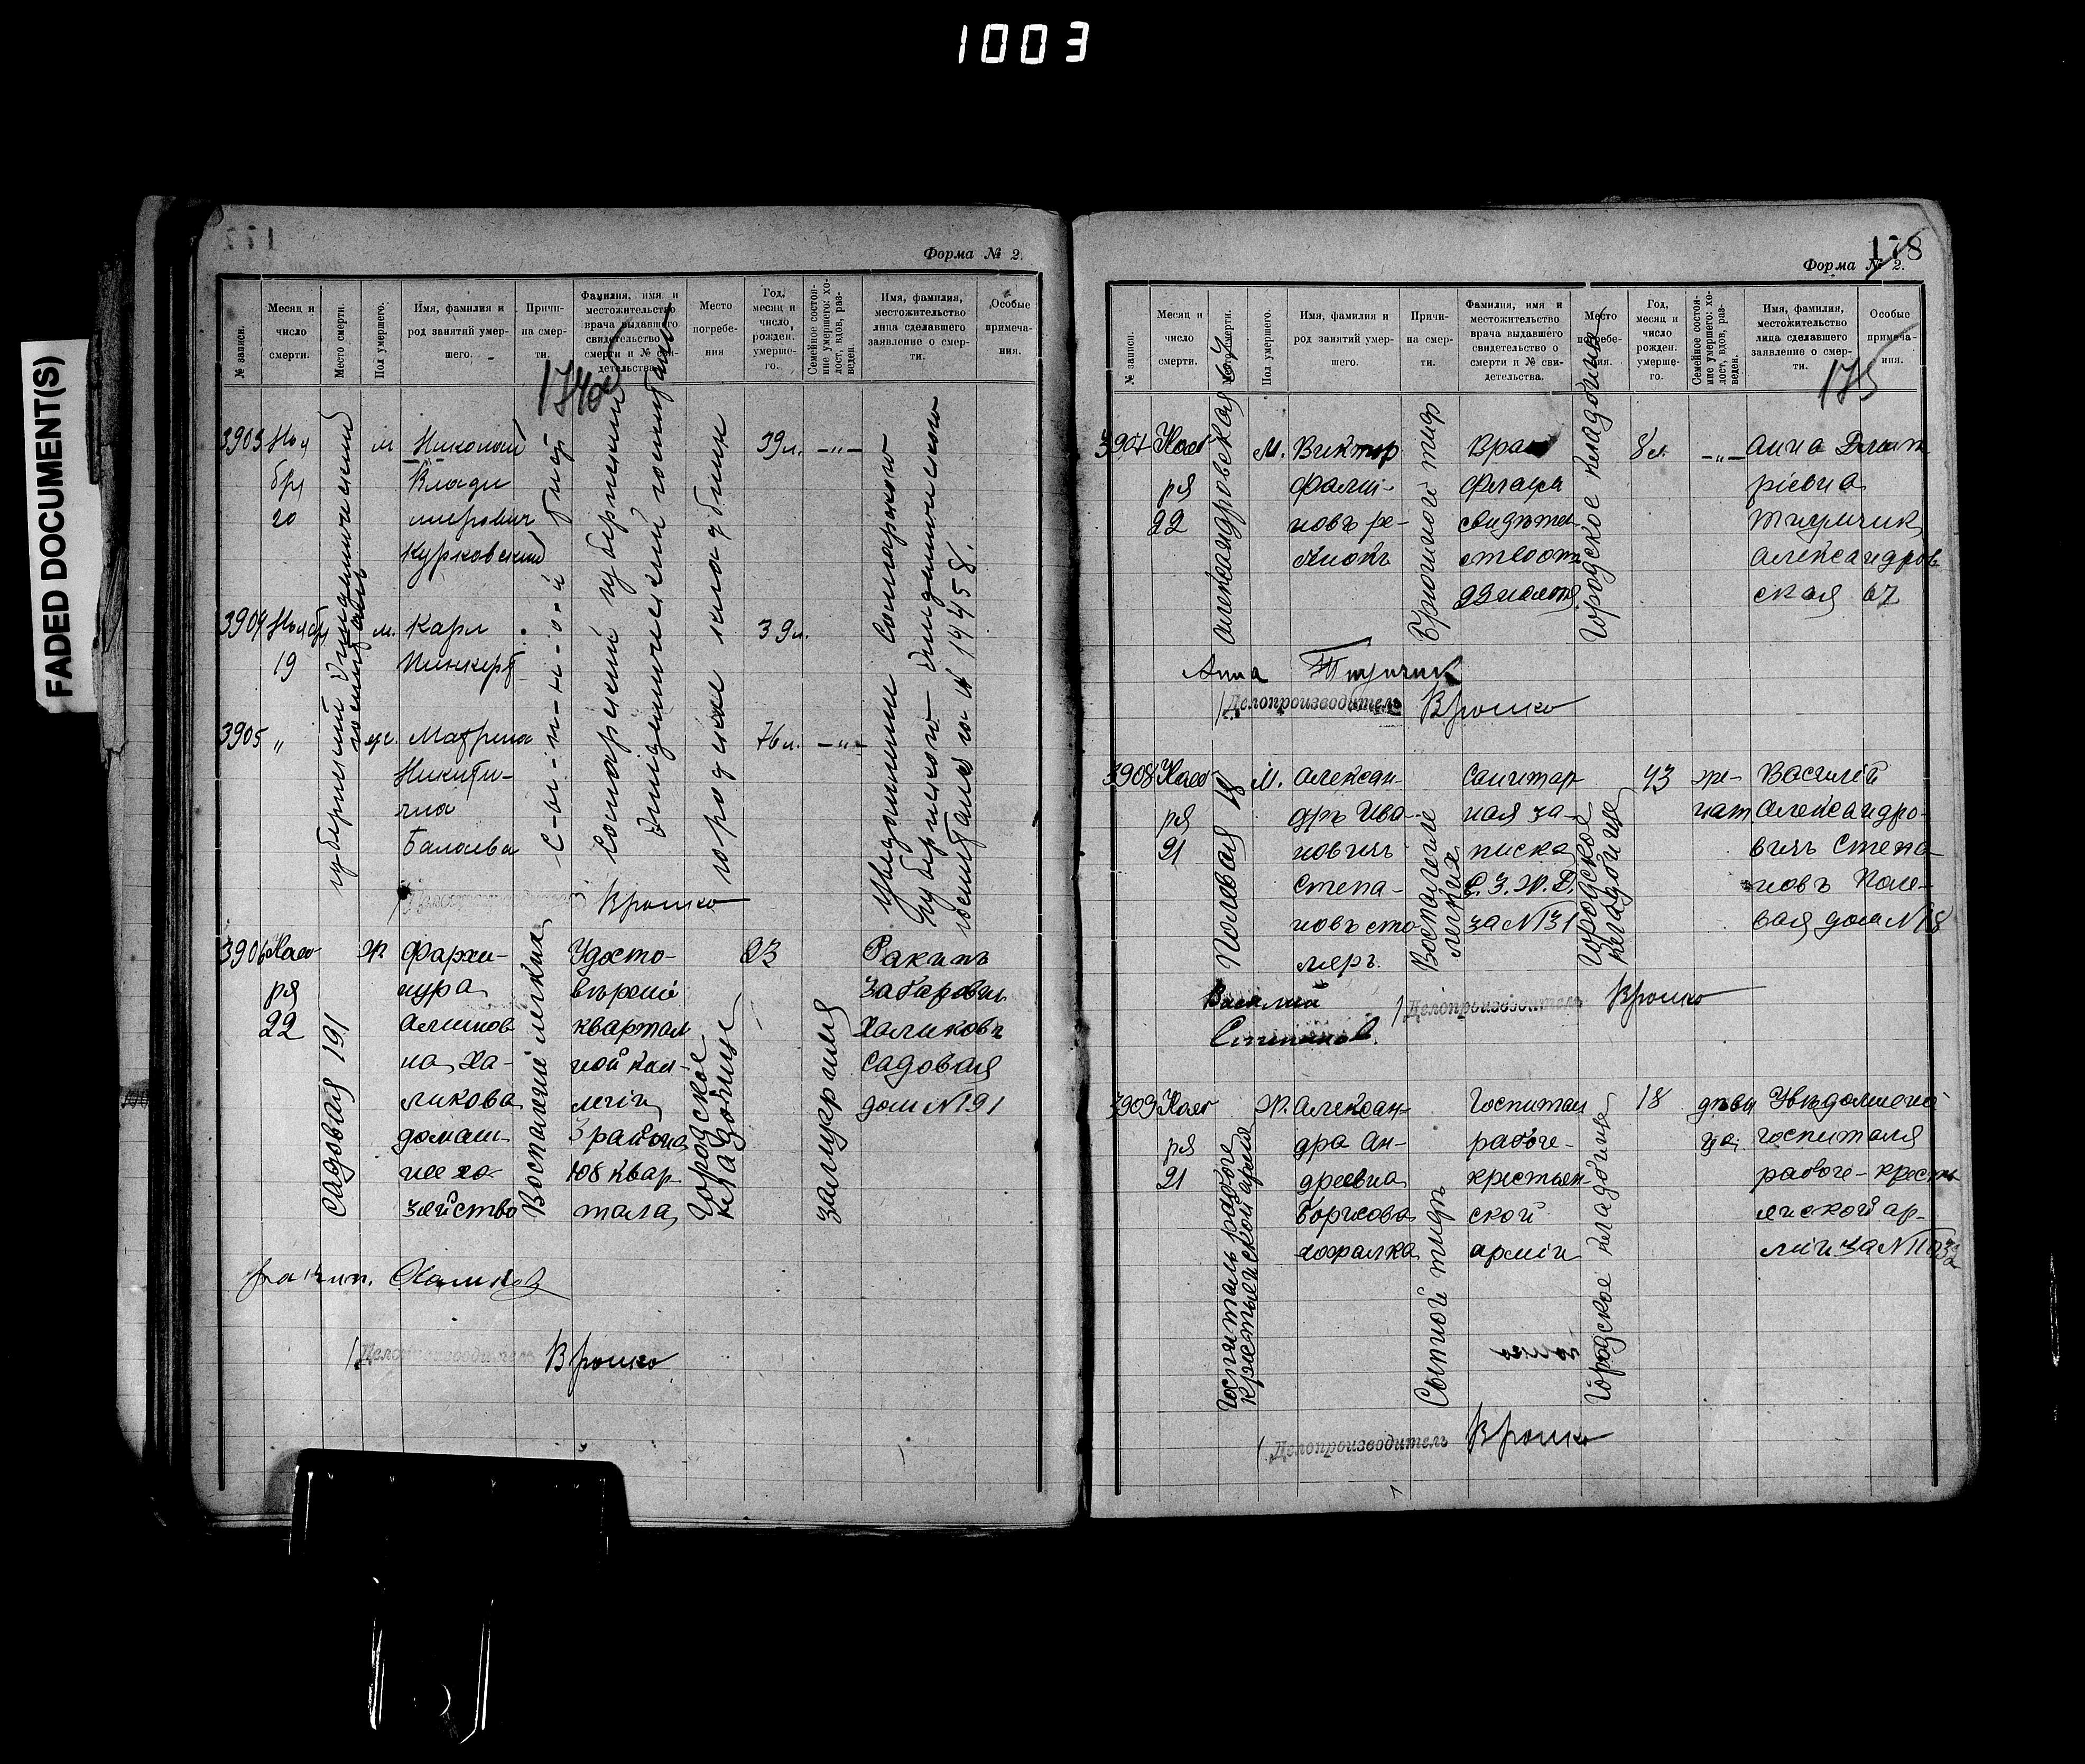 1003
FADED DOCUMENT(S)
Форма № 2.
№ записи.
Месяц и
число
смерти.
Место смерти.
Пол умершего.
Имя, фамилия и
род занятий умер-
шего.
Причи-
на смер-
ти.
Фамилия, имя и
местожительство
врача выдавшего
свидетельство о
смерти и № сви-
детельства.
Место
погребе-
ния
Год,
месяц и
число
рожден.
умерше-
го.
Семейное состоя-
ние умершего: хо-
лост, вдов, раз-
веден.
Имя, фамилия,
местожительство
лица сделавшего
заявление о смер-
ти.
Особые
примеча-
ния.
3903
20
м
Николай
Влади
мирович
Курковский
тиф
39л.
-"-
3904
Ноября
19
м.
Карл
Пинкерт
39л.
3905
"
ж.
Матрена
Никити-
чна
Балаева
76л.
-"-
губернский эпидемический
госпиталь
с-ы-п-н-о-й
Самарский губернский
эпидемический госпиталь
городское кладбище
Уведомление Самарского
губернского эпидемического
госпиталя за № 14458.
Врошко
3906
Нояб
ря
22
Садовая 191
Ж.
Фархи-
нура
Алимов
на Ха-
ликова
домаш-
нее хо-
зяйство
Воспаление легких
Удосто-
верение
квартал
ной ком-
мисии
3 района
108 квар
тала
Городское
кладбище
23
замужняя
Ракипъ
Забарович
Халиковъ
Садовая
дом № 191
Делопроизводитель Врошко
178
Форма № 2.
№ записи.
Месяц и
число
смерти.
Место смерти.
Пол умершего.
Имя, фамилия и
род занятий умер-
шего.
Причи-
на смер-
ти.
Фамилия, имя и
местожительство
врача выдавшего
свидетельство о
смерти и № сви-
детельства.
Место
погребе-
ния.
Год,
месяц и
число
рожден.
умерше-
го.
Семейное состоя-
ние умершего: хо-
лост, вдов, раз-
веден.
Имя, фамилия,
местожительство
лица сделавшего
заявление о смер-
ти.
Особые
примеча-
ния.
175
3907
Нояб
ря
22
Александровская 67
М.
Виктор
Фали-
новъ ре-
Брюшной тиф
Врач
свидетел
ство от
22 ноября
Городское кладбище
8 л.
-"-
Анна Дмит
риевна
Тиумчик
Александров
ская 67
Анна
Делопроизводитель Врошко
3908
Нояб
ря
21
Полевая 18
М.
Алексан-
дръ Ива-
новичъ
Степа-
новъ сто
ляръ.
Воспаление
легких
Санитар
ная за-
писка
С.З.Ж.Д.
за № 131
Городское
кладбище
43
же-
нат
Василий
Александро-
вичъ Степа
новъ Поле-
вая дом № 18
Василий
Степанов
Делопроизводитель Врошко
3909
Нояб
ря
21
Госпиталь рабоче
крестьянской армии
Ж.
Алексан-
дра Ан-
дреевна
Борисова
Сыпной тифъ
Госпитал
рабоче-
крестьян
ской
армии
Городское кладбище
18
деви
ца
Уведомление
госпиталя
рабоче-кресть
янской ар-
мии за № 11032
Делопроизводитель Врошко